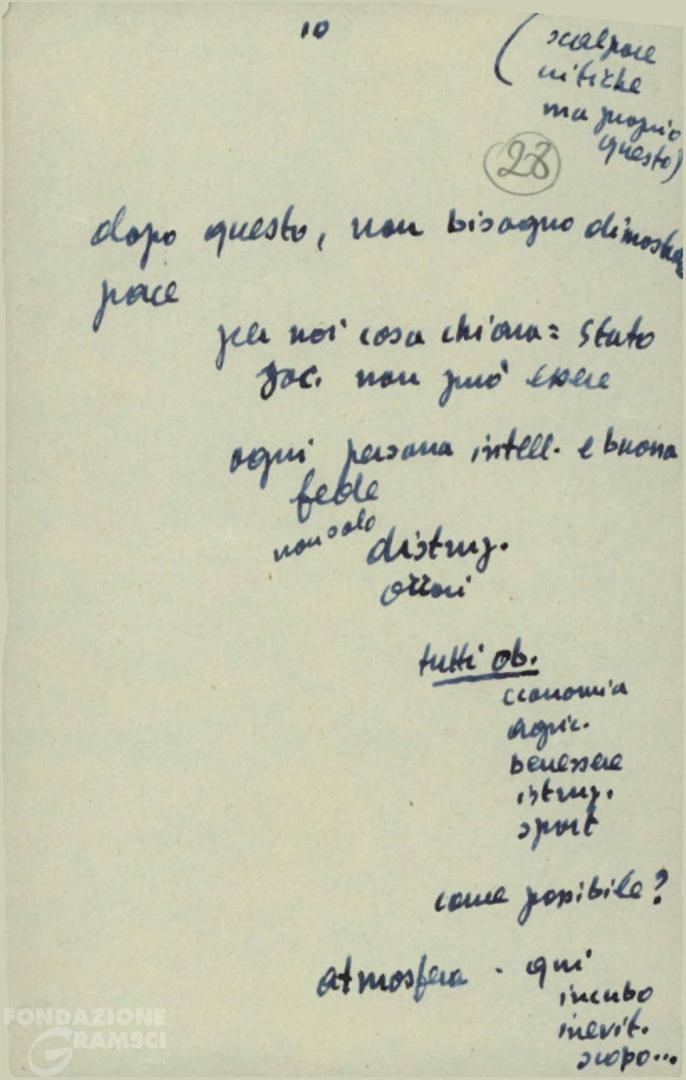 10
(scalpore
critiche
ma proprio
questo)
28
dopo questo, non bisogno dimostra
pace
per noi cosa chiara = Stato
soc. non può essere
ogni persona intell. e buona
fede
non solo
distruz.
orrori
tutti ob.
economia
agric.
benessere
istruz.
sport
come possibile?
atmosfera - qui
incubo
inevit.
scopo...
FONDAZIONE
GRAMSCI